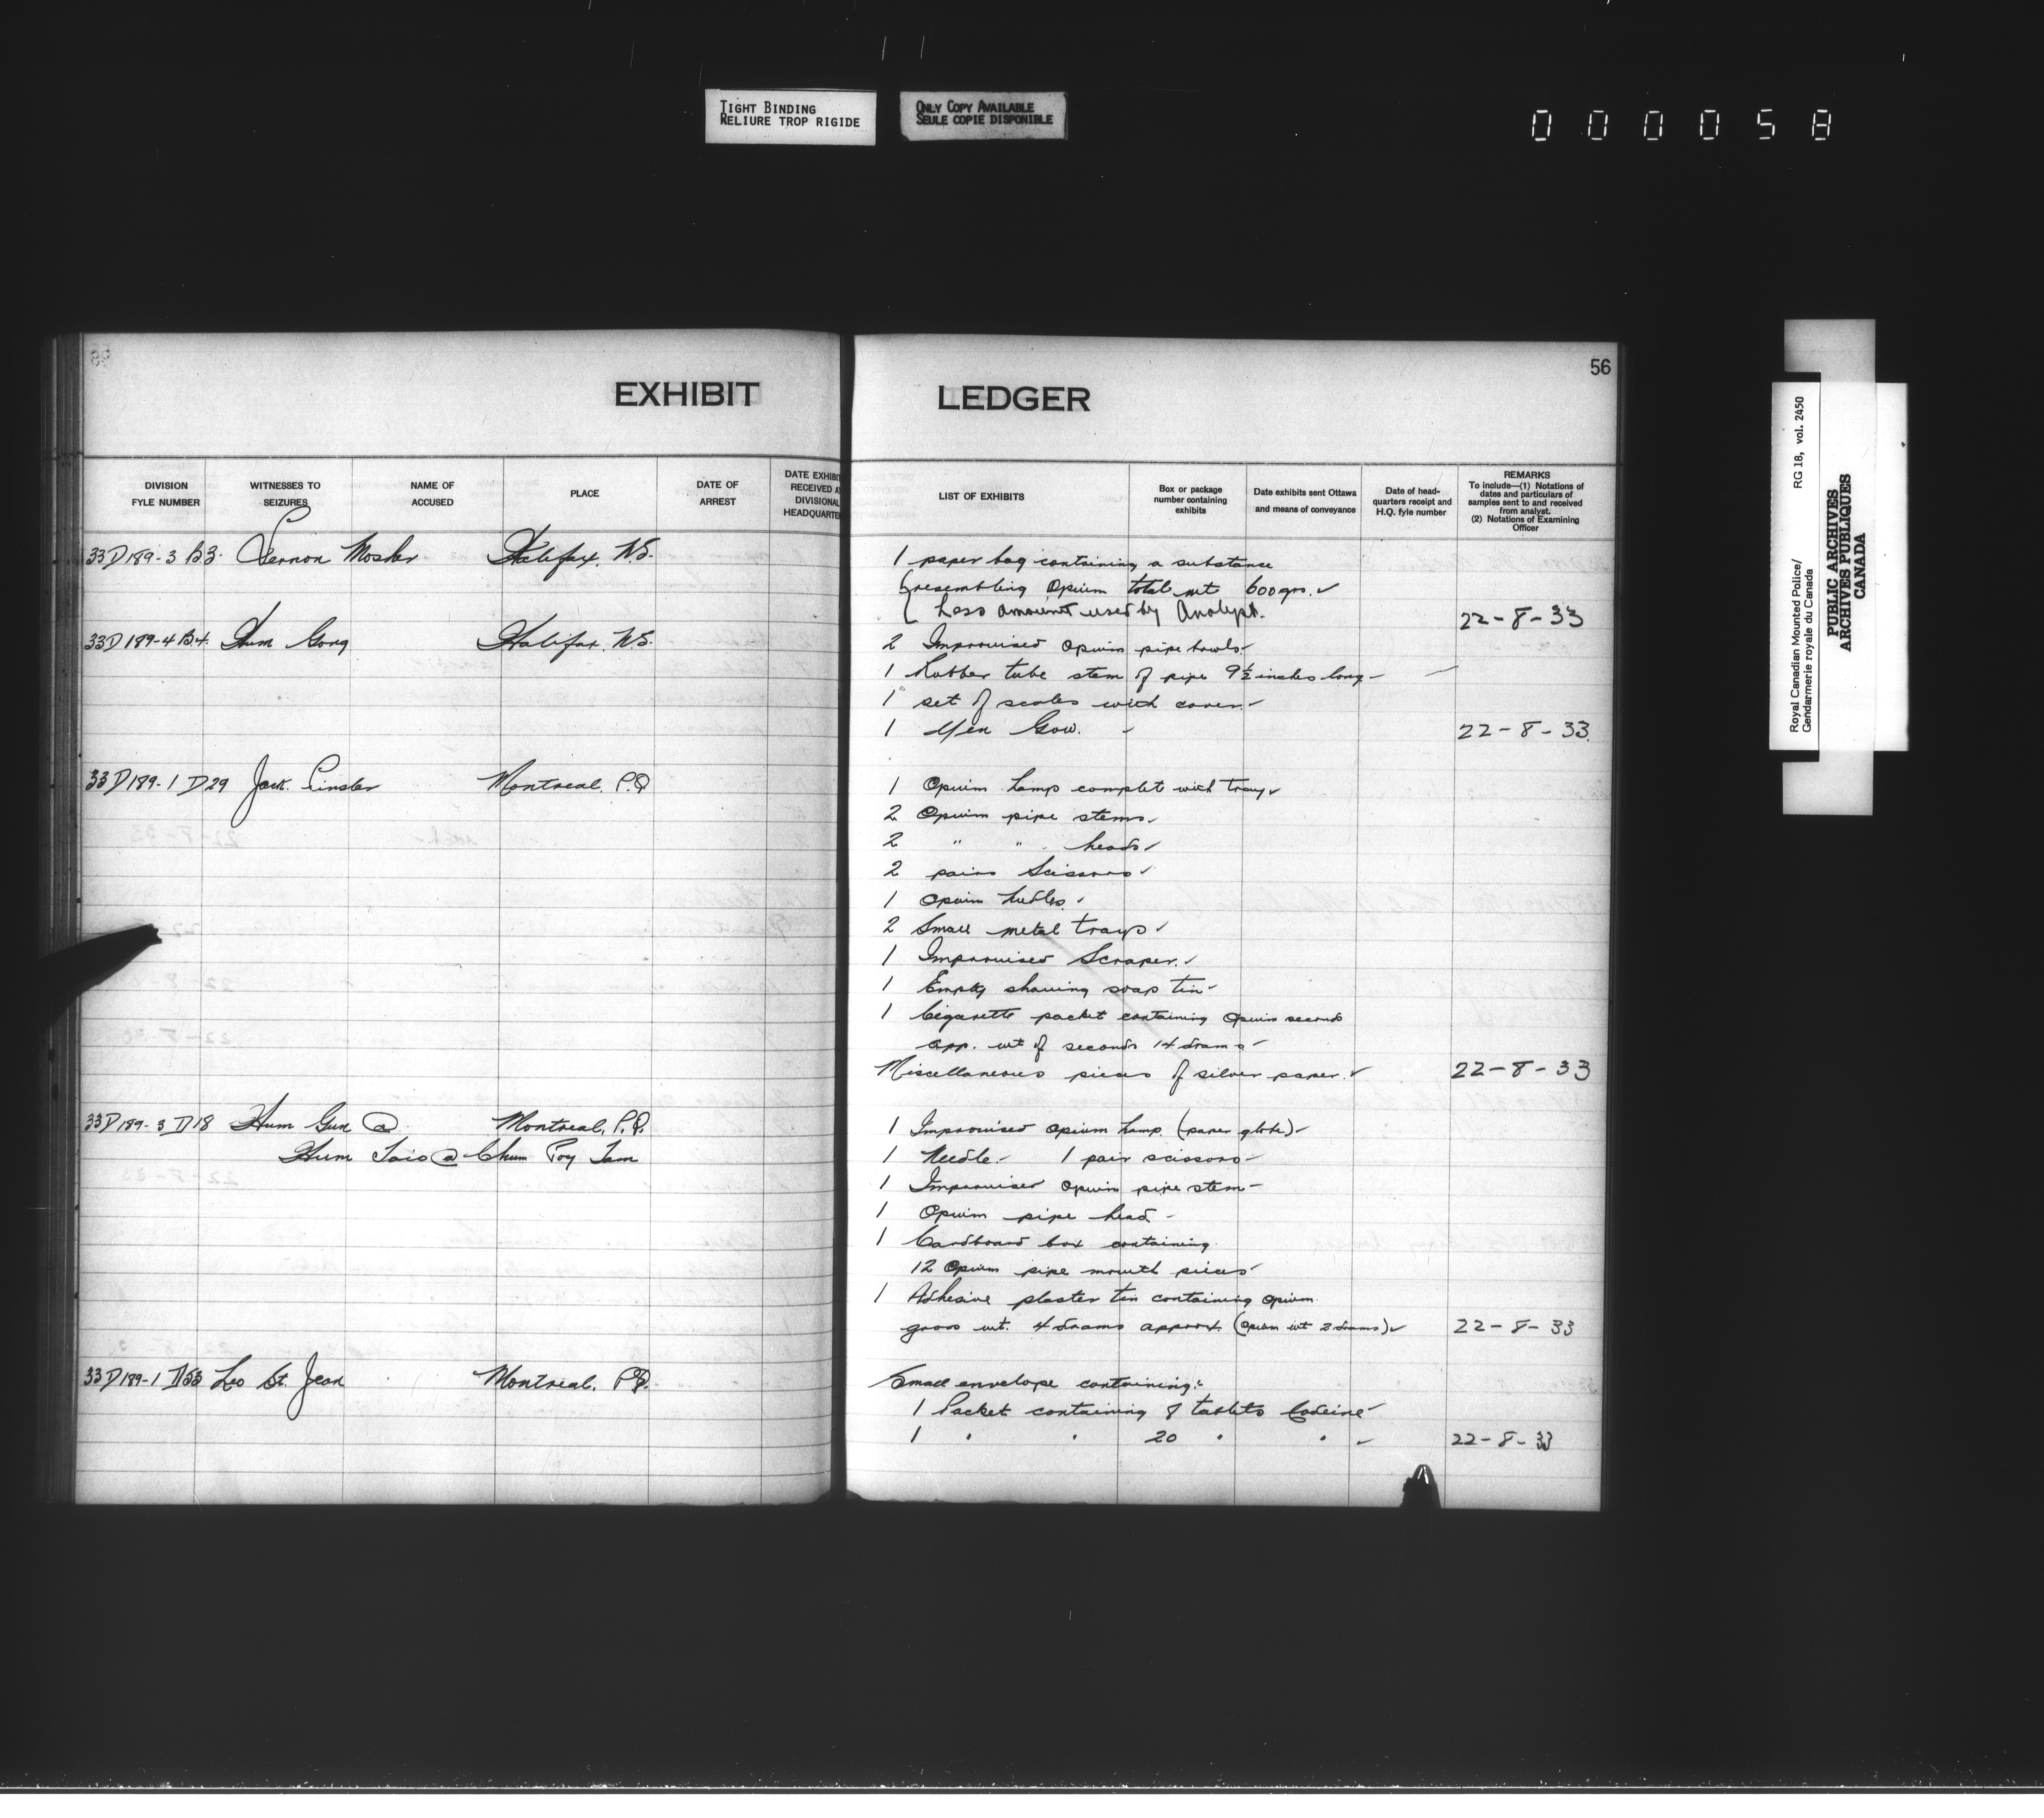 TIGHT BINDING
RELIURE TROP RIGIDE
ONLY COPY AVAILABLE
SEULE COPIE DISPONIBLE
000058
56
EXHIBIT LEDGER
DIVISION
FYLE NUMBER
WITNESSES TO
SEIZURES
NAME OF
ACCUSED
PLACE
DATE OF
ARREST
DATE EXHIBI
RECEIVED A
DIVISIONAL
HEADQUARTE
LIST OF EXHIBITS
Box or package
number containing
exhibits
Date exhibits sent Ottawa
and means of conveyance
Date of head-
quarters receipt and
H.Q. fyle number
REMARKS
To include—(1) Notations of
dates and particulars of
samples sent to and received
from analyst.
(2) Notations of Examining
Officer
33D189-3 B.3. Vernon Mosher Halifax, N.S. 1 paper bag containing a substance
(resembling Opium total wt 600grs. ✓
( Less amount used by Analyst. 22-8-33
33D189-4 B.4. Hum Gong Halifax, N.S. 2 Improvised opium pipe bowls
1 Rubber tube stem of pipe 9½ inches long
1 set of scales with cover
1 Yen Gow. 22-8-33.
33D189-1 D29 Jack Montreal, P.Q 1 Opium Lamp complet with tray
2 Opium pipe stems
2 " " heads ✓
2 pairs Scissors ✓
1 Opium ✓
2 Small metal trays ✓
1 Improvised Scraper. ✓
1 Empty shaving soap tin
1 Cigarette packet containing Opium seconds
app. wt of seconds 14 drams
Miscellaneous pieces of silver paper. ✓ 22-8-33
33D189-3 D18 Hum Gun @ Montreal, P.Q. 1 Improvised opium Lamp (paper globe)
Hum @ Chum Poy Tam 1 Needle. 1 pair scissors
1 Improvised opium pipe stem
1 Opium pipe head
1 Cardboard box containing
12 Opium pipe mouth pieces
1 Adhesive plaster tin containing opium
gross wt. 4 drams approx. (Opium wt 2 drams) ✓ 22-8-33
33D189-1 D53 Leo St. Jean Montreal, P.Q. Small envelope containing:
1 Packet containing 8 tablets Codeine
1 " " 20 " " ✓ 22-8-33
Royal Canadian Mounted Police/
Gendarmerie royale du Canada
RG 18, vol. 2450
PUBLIC ARCHIVES
ARCHIVES PUBLIQUES
CANADA